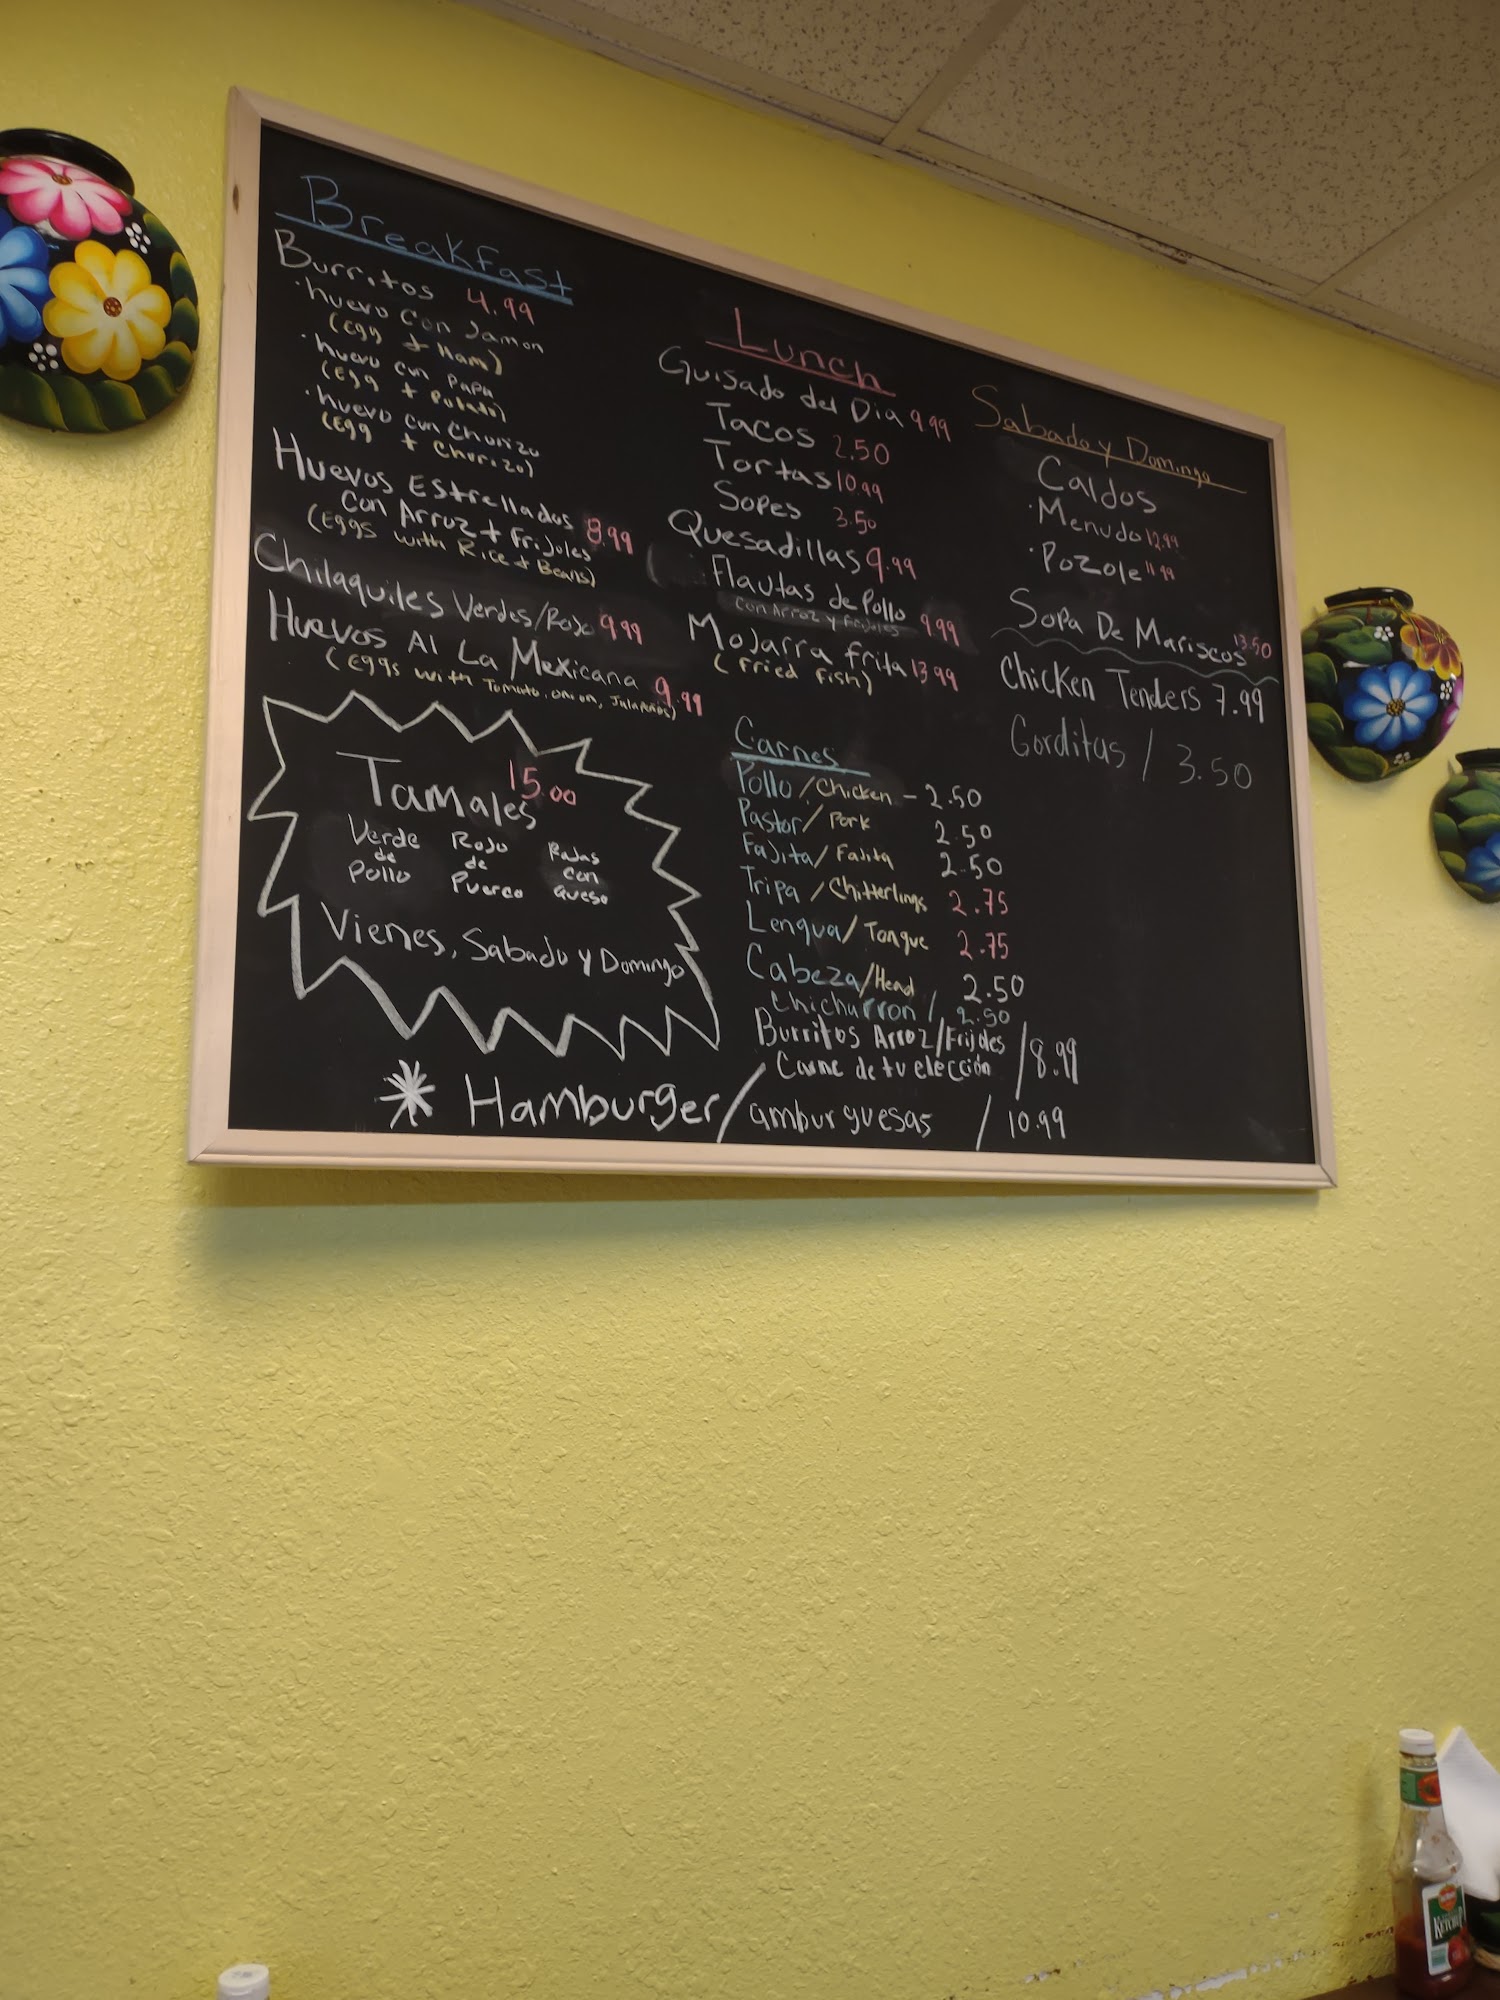 Breakfast
Burritos 4.99
· huevo con Jamon
(Egg + Ham)
· huevo con papa
(Egg + Potato)
· huevo con Chorizo
(Egg + Chorizo)
Huevos Estrellados 8.99
con Arroz + Frijoles
(Eggs with Rice + Beans)
Chilaquiles Verdes/Rojo 9.99
Huevos Al La Mexicana 9.99
(Eggs with Tomato, onion, Jalapeños)
Tamales 15.00
Verde de Pollo
Rojo de Puerco
Rajas con queso
Vienes, Sabado y Domingo
Lunch
Guisado del Dia 9.99
Tacos 2.50
Tortas 10.99
Sopes 3.50
Quesadillas 9.99
Flautas de Pollo 9.99
con Arroz y Frijoles
Mojarra frita 13.99
(Fried Fish)
Carnes
Pollo/Chicken - 2.50
Pastor/Pork 2.50
Fajita/Fajita 2.50
Tripa/Chitterlings 2.75
Lengua/Tongue 2.75
Cabeza/Head 2.50
Chicharron / 2.50
Burritos Arroz/Frijoles
Carne de tu elección / 8.99
* Hamburger/amburguesas / 10.99
Sabado y Domingo
Caldos
· Menudo 12.99
· Pozole 11.99
Sopa De Mariscos 13.50
Chicken Tenders 7.99
Gorditas / 3.50
Ketchup